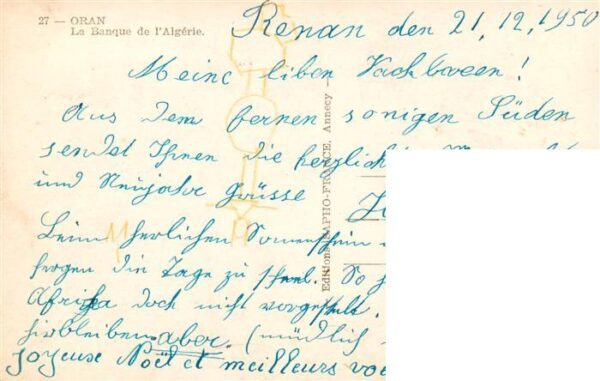 27 — ORAN
La Banque de l'Algérie.
Renan den 21, 12, 1950
Meine liben Nachbaren!
Aus dem fernen sonigen Süden
sendet Ihnen die herzlich
und Neujahr Grüsse
Beim herlichen Sonnenschein
fergen die Tage zu schnel. So
Afrika doch nicht vorgestelt.
hirbleiben aber. (mündlich
joyeuse Noël et meilleurs voe
Editions RAPHO-FRANCE, Annecy —